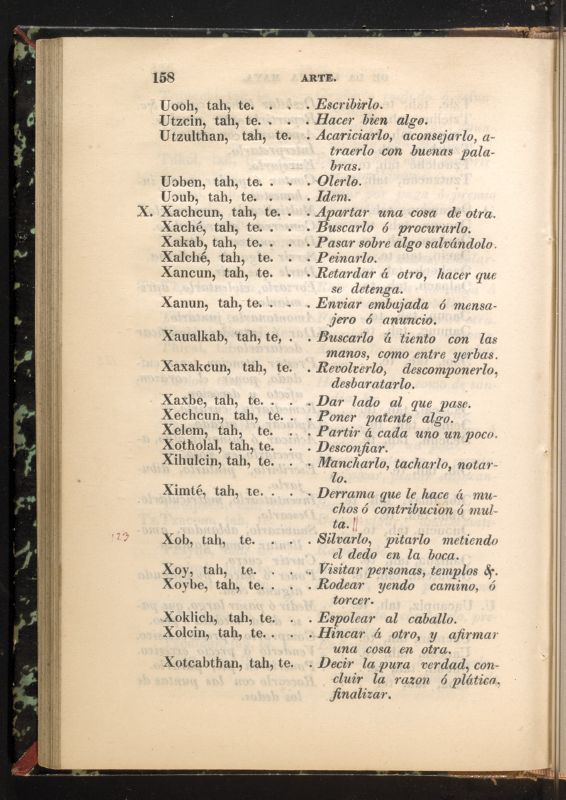 158 ARTE.
Uooh, tah, te. . . . Escribirlo.
Utzcin, tah, te. . . . Hacer bien algo.
Utzulthan, tah, te. . Acariciarlo, aconsejarlo, a-
traerlo con buenas pala-
bras.
Uɔben, tah, te. . . . Olerlo.
Uɔub, tah, te. . . . Idem.
X. Xachcun, tah, te. . . Apartar una cosa de otra.
Xaché, tah, te. . . . Buscarlo ó procurarlo.
Xakab, tah, te. . . . Pasar sobre algo salvándolo.
Xalché, tah, te. . . . Peinarlo.
Xancun, tah, te. . . Retardar á otro, hacer que
se detenga.
Xanun, tah, te. . . . Enviar embajada ó mensa-
jero ó anuncio.
Xaualkab, tah, te, . . Buscarlo á tiento con las
manos, como entre yerbas.
Xaxakcun, tah, te. . Revolverlo, descomponerlo,
desbaratarlo.
Xaxbe, tah, te. . . . Dar lado al que pase.
Xechcun, tah, te. . . Poner patente algo.
Xelem, tah, te. . . . Partir á cada uno un poco.
Xotholal, tah, te. . . Desconfiar.
Xihulcin, tah, te. . . Mancharlo, tacharlo, notar-
lo.
Ximté, tah, te. . . . Derrama que le hace á mu-
chos ó contribucion ó mul-
ta.
123 Xob, tah, te. . . . Silvarlo, pitarlo metiendo
el dedo en la boca.
Xoy, tah, te. . . . . Visitar personas, templos &.
Xoybe, tah, te. . . . Rodear yendo camino, ó
torcer.
Xoklich, tah, te. . . Espolear al caballo.
Xolcin, tah, te. . . . Hincar á otro, y afirmar
una cosa en otra.
Xotcabthan, tah, te. . Decir la pura verdad, con-
cluir la razon ó plática,
finalizar.